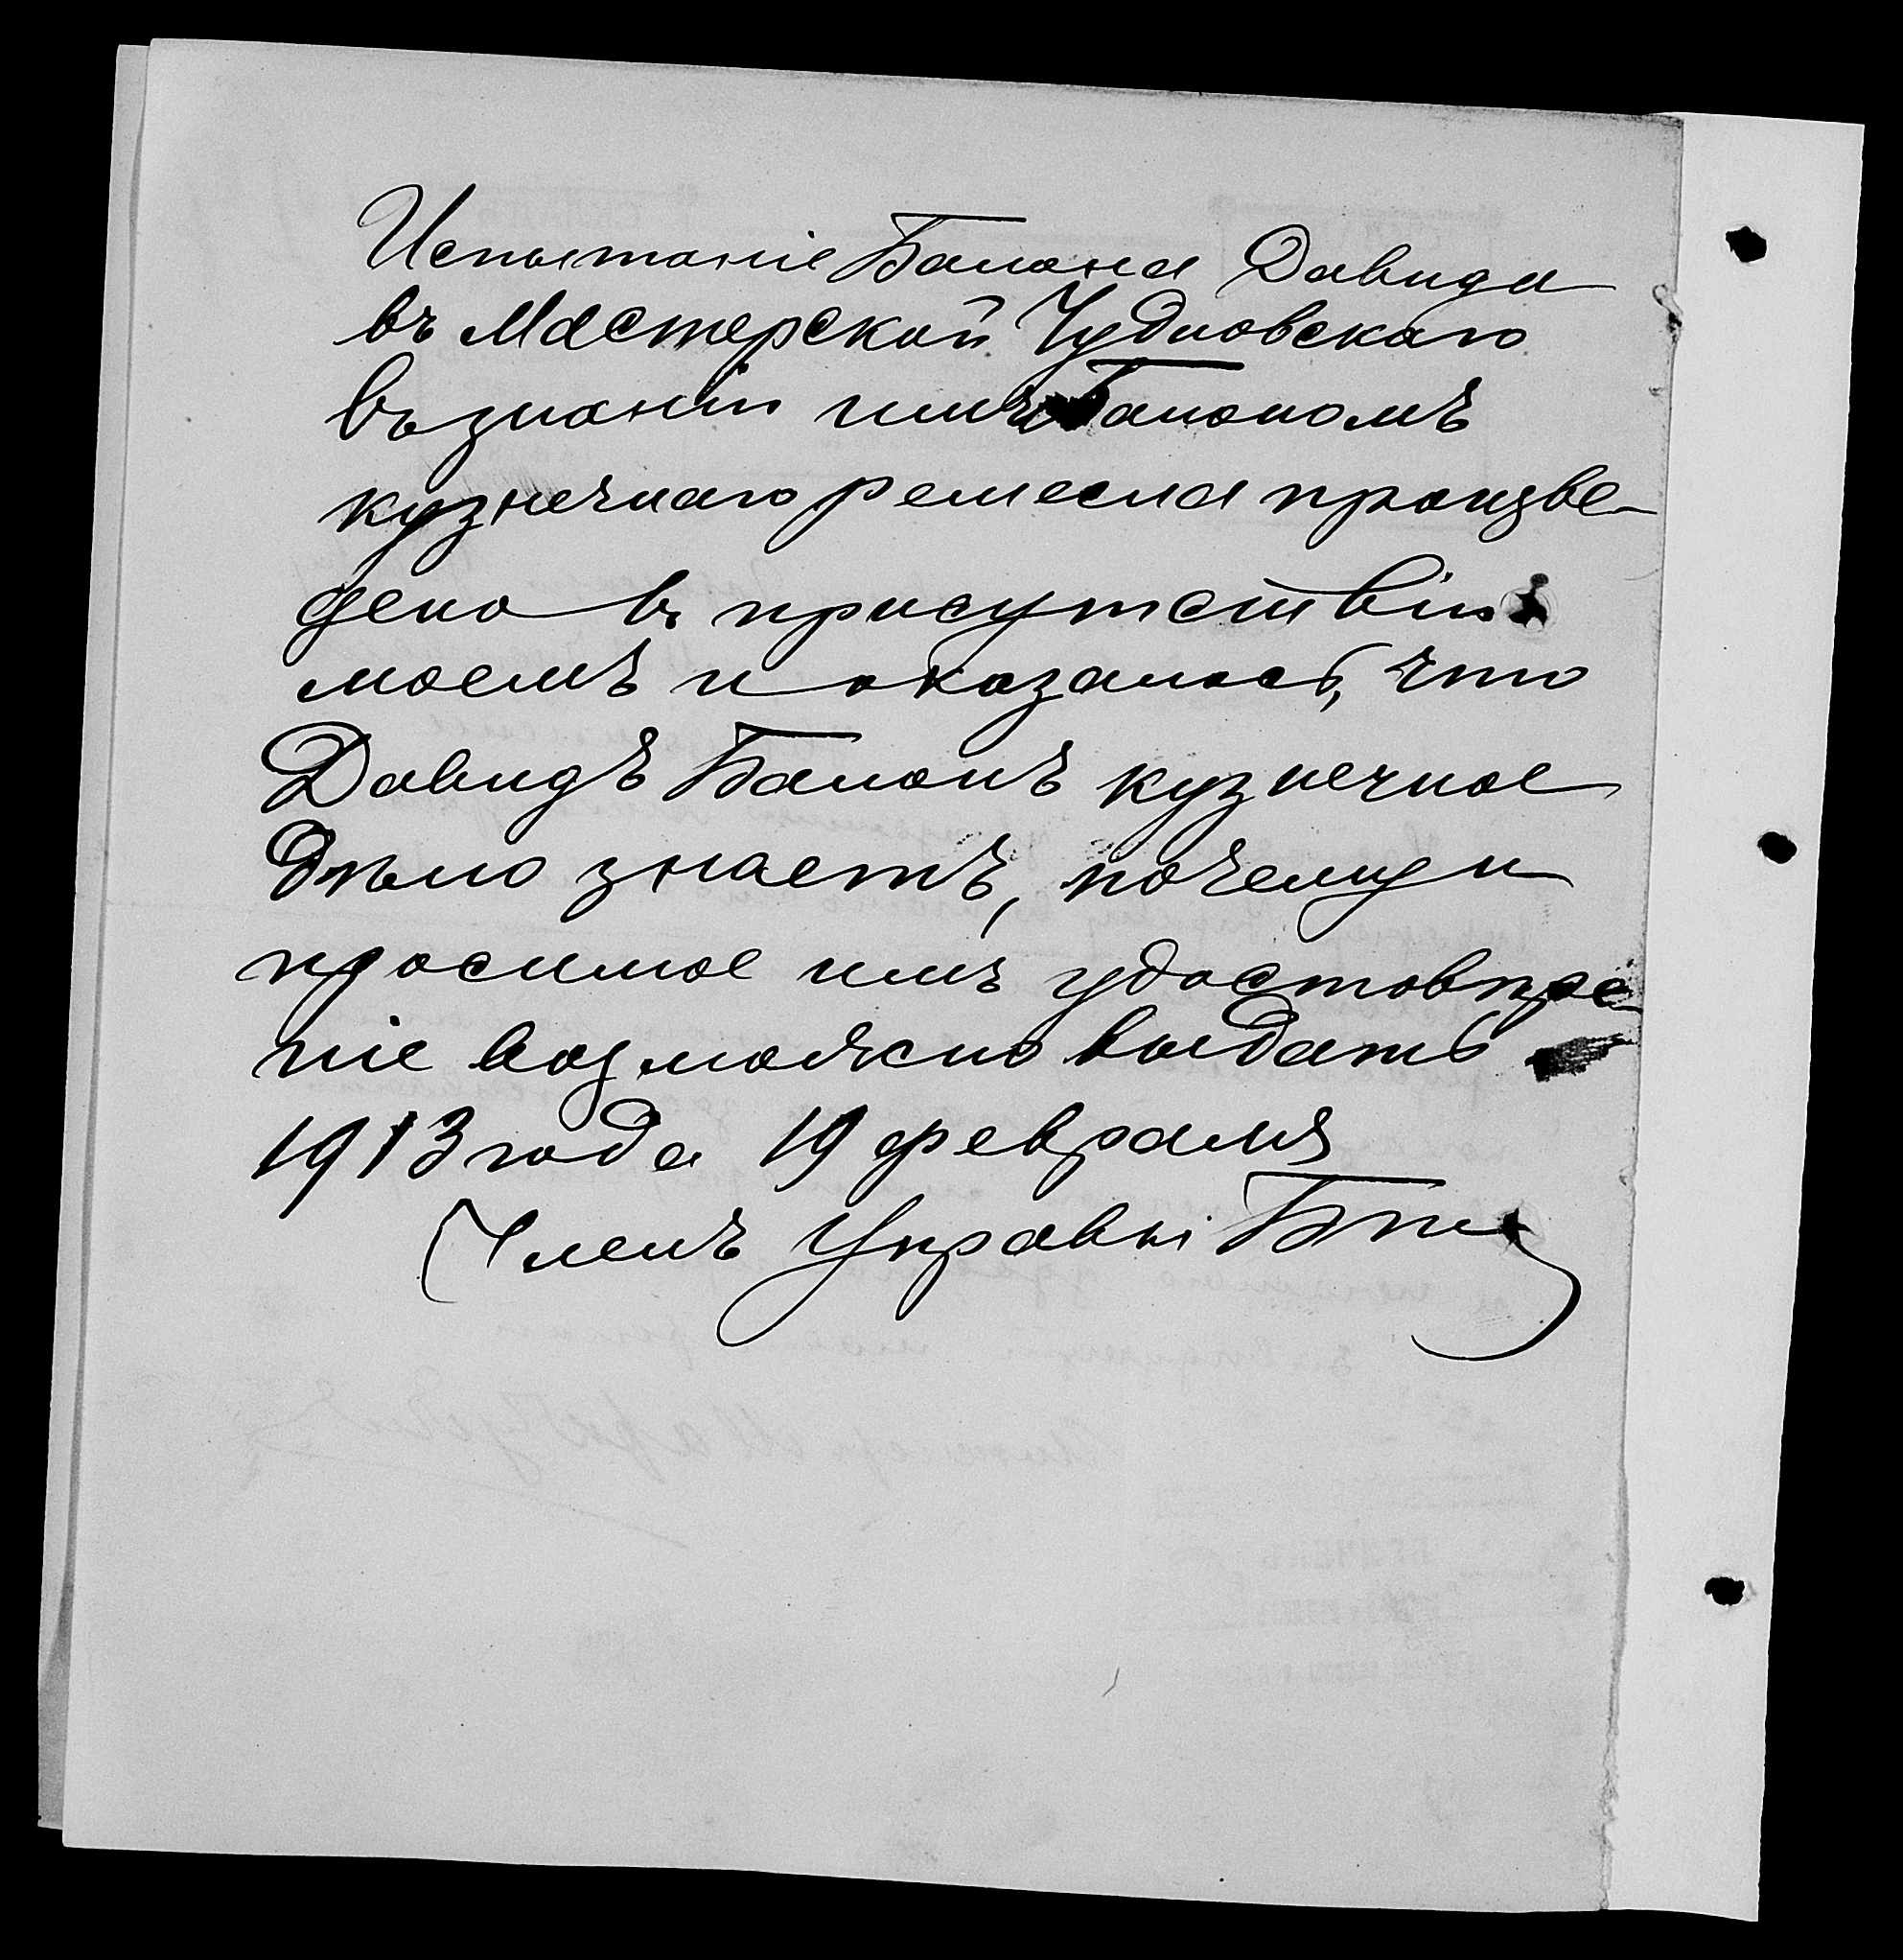 Испытаніе Балона Давида
въ Мастерской Чудновскаго
въ знаніи имъ Балономъ
кузнечнаго ремесла произве-
дено въ присутствіи
моемъ и оказалось, что
Давидъ Балонъ кузнечное
дѣло знаетъ, почему и
просимое имъ удостовѣре-
ніе возможно выдать
1913 года 19 февраля
Членъ Управы